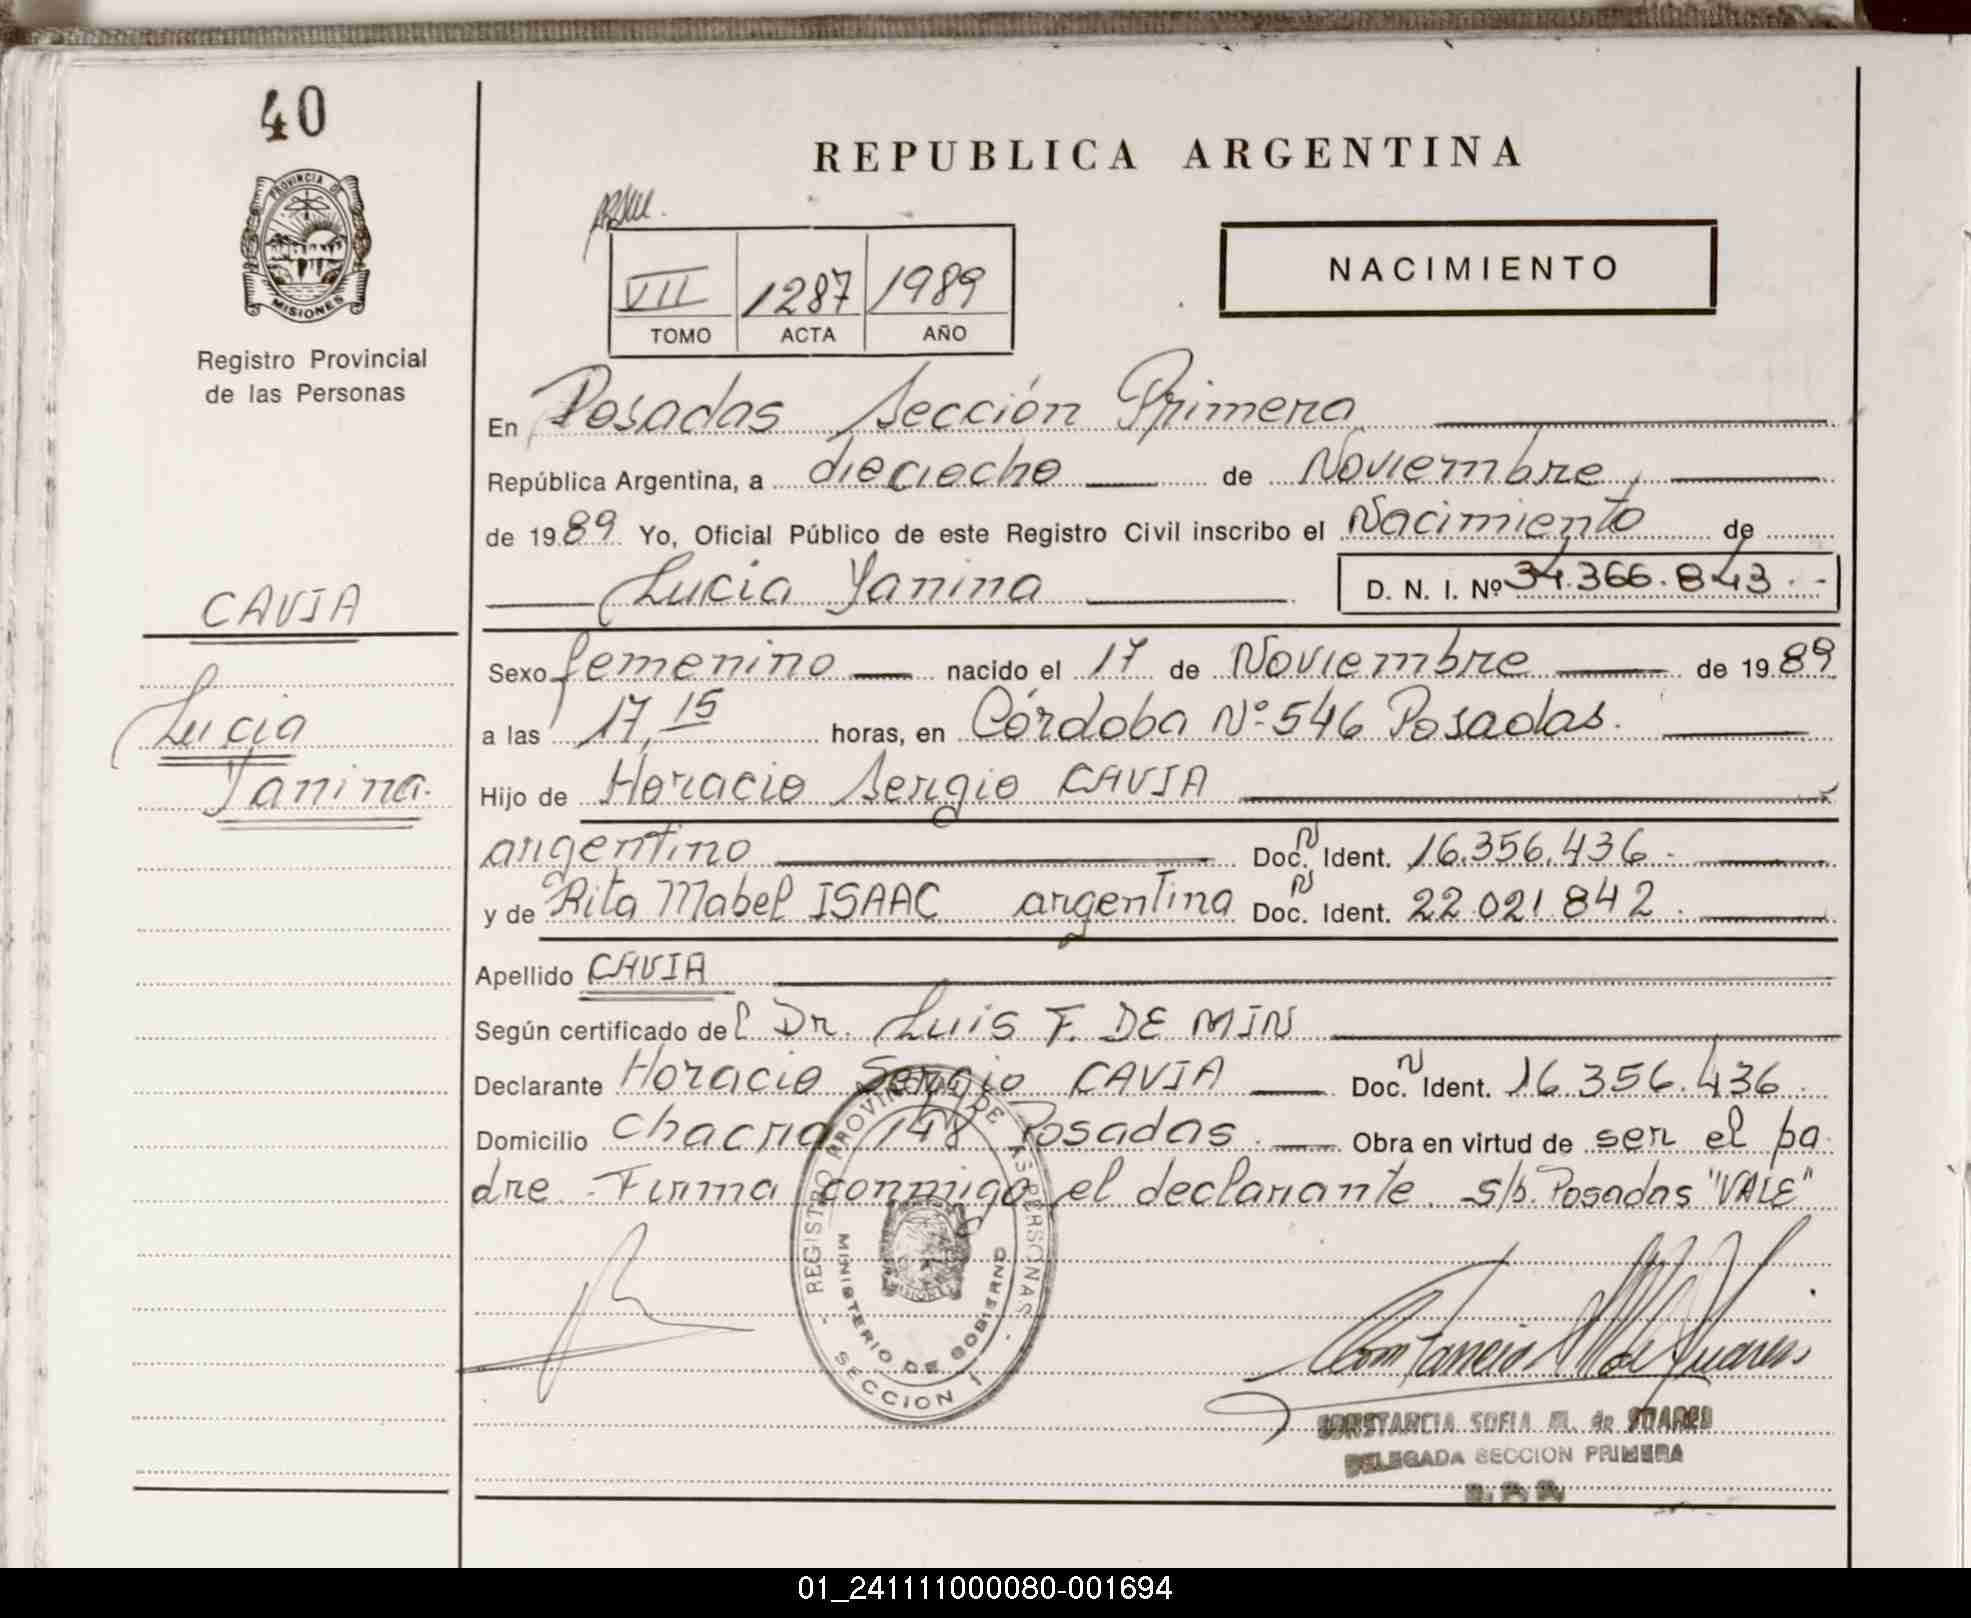 40
PROVINCIA DE
MISIONES
Registro Provincial
de las Personas
CAVIA
Lucia
Yanina.
REPUBLICA ARGENTINA
VII 1287 1989
TOMO ACTA AÑO
NACIMIENTO
En Posadas Sección Primera
República Argentina, a dieciocho de Noviembre,
de 1989 Yo, Oficial Público de este Registro Civil inscribo el Nacimiento de
Lucia Yanina D. N. I. Nº 34.366.843.-
Sexo femenino nacido el 17 de Noviembre de 1989
a las 17,15 horas, en Córdoba Nº 546 Posadas.
Hijo de Horacio Sergio CAVIA
argentino Doc. N Ident. 16.356.436.
y de Rita Mabel ISAAC argentina Doc. N Ident. 22.021.842.
Apellido CAVIA
Según certificado del Dr. Luis F. DE MIN
Declarante Horacio Sergio CAVIA Doc. N Ident. 16.356.436.
Domicilio Chacra 148 Posadas. Obra en virtud de ser el pa
dre. Firma conmigo el declarante. s/b. Posadas "VALE"
REGISTRO PROVINCIAL DE LAS PERSONAS
MINISTERIO DE GOBIERNO
SECCION 1
CONSTANCIA SOFIA M. de SUARES
DELEGADA SECCION PRIMERA
01_241111000080-001694